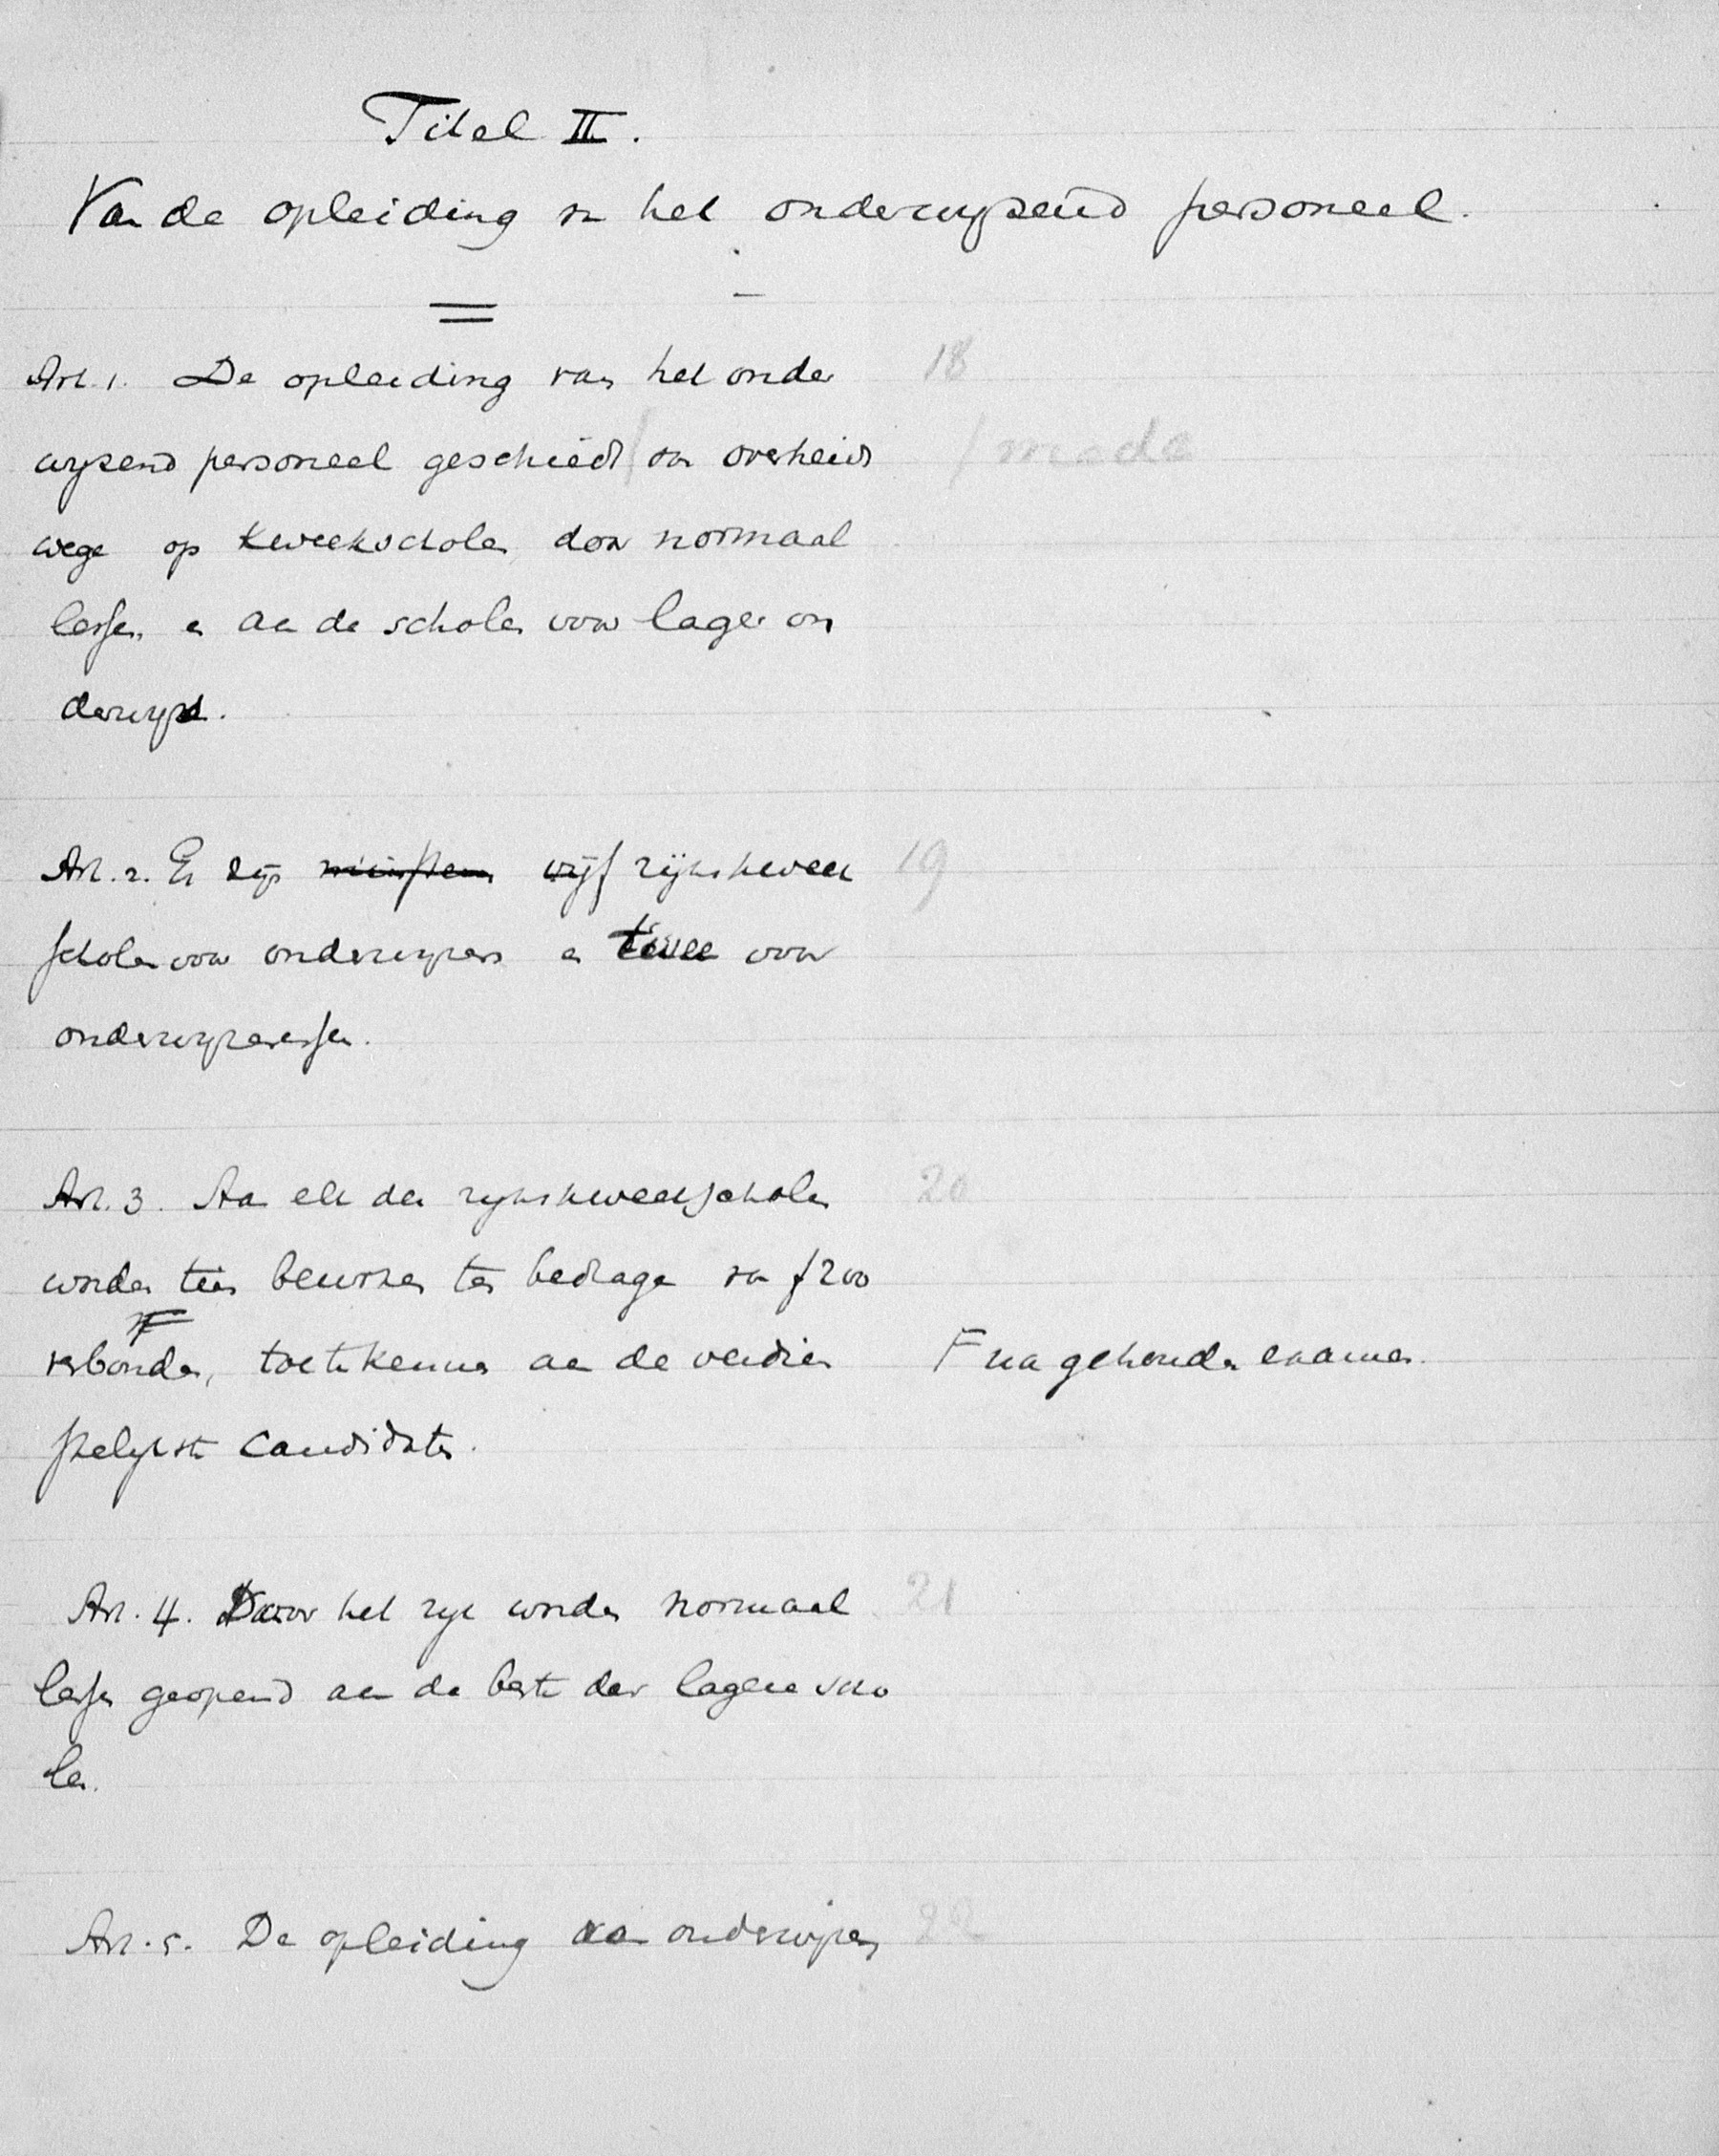 Titel II.
Van de opleiding van het onderwijzend personeel.
Art. 1. De opleiding van het onder 18
wijzend personeel geschiedt / van overheids / mede
wege op kweekscholen, door normaal
lessen, en aan de scholen voor lager on
derwijs.
Art. 2. Er zijn minstens vijf rijkskweek 19
scholen voor onderwijzers en twee voor
onderwijzeressen.
Art. 3. Aan elk der rijkskweekscholen 20
worden tien beurzen ten bedrage van f 200
F
verbonden, toe te kennen aan de verdien F na gehouden examen.
stelijkste candidaten.
Art. 4. Door het rijk worden normaal 21
lessen geopend aan de beste der lagere scho
len.
Art. 5. De opleiding van onderwijzers 22